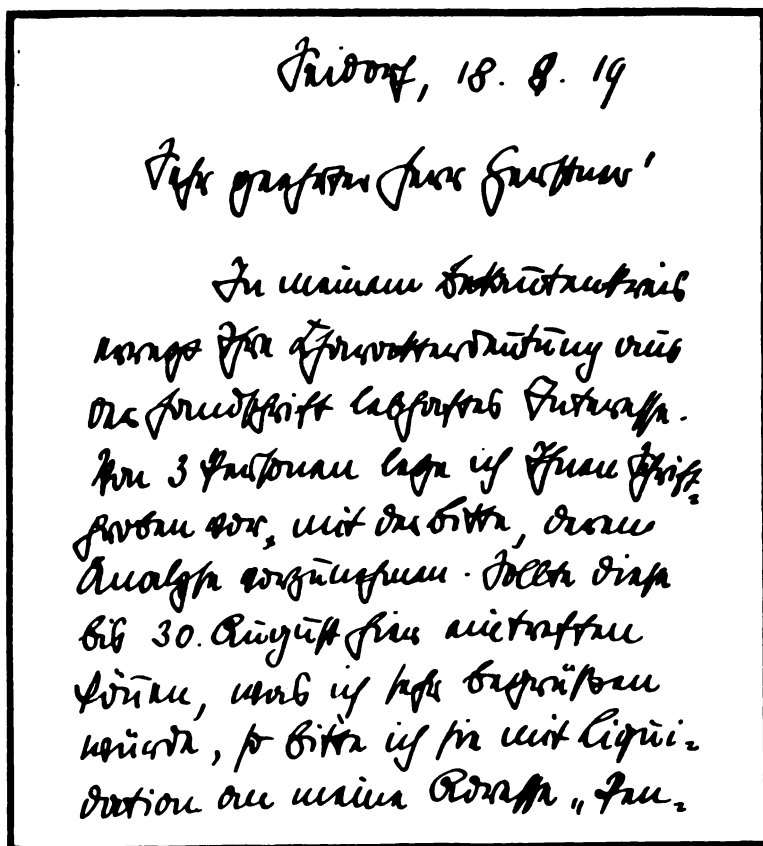 Seidorf, 18. 8. 19
Sehr geehrter Herr Gerstner!
In meinem Bekanntenkreis
erregt Ihre Charakterdeutung aus
der Handschrift lebhaftes Interesse.
Von 3 Personen lege ich Ihnen Schrift-
proben vor, mit der Bitte, deren
Analyse vorzunehmen. Sollte diese
bis 30. August hier eintreffen
können, was ich sehr begrüßen
würde, so bitte ich sie mit Liqui-
dation an meine Adresse „Pen-